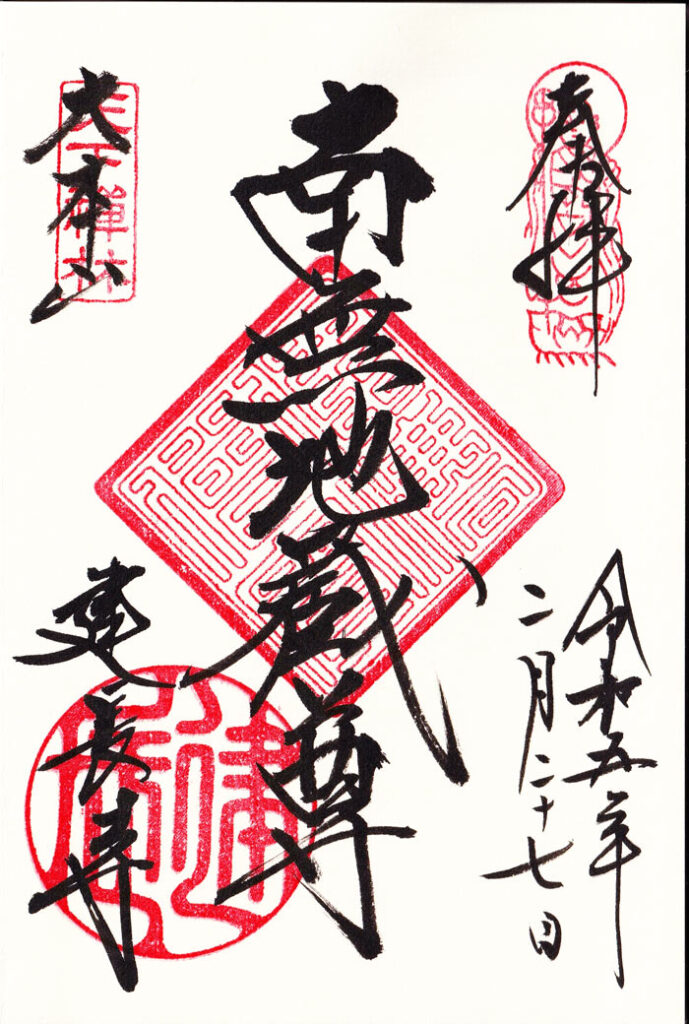 奉拝
令和五年
二月二十七日
南無地蔵尊
大本山
天下禅林
建長寺